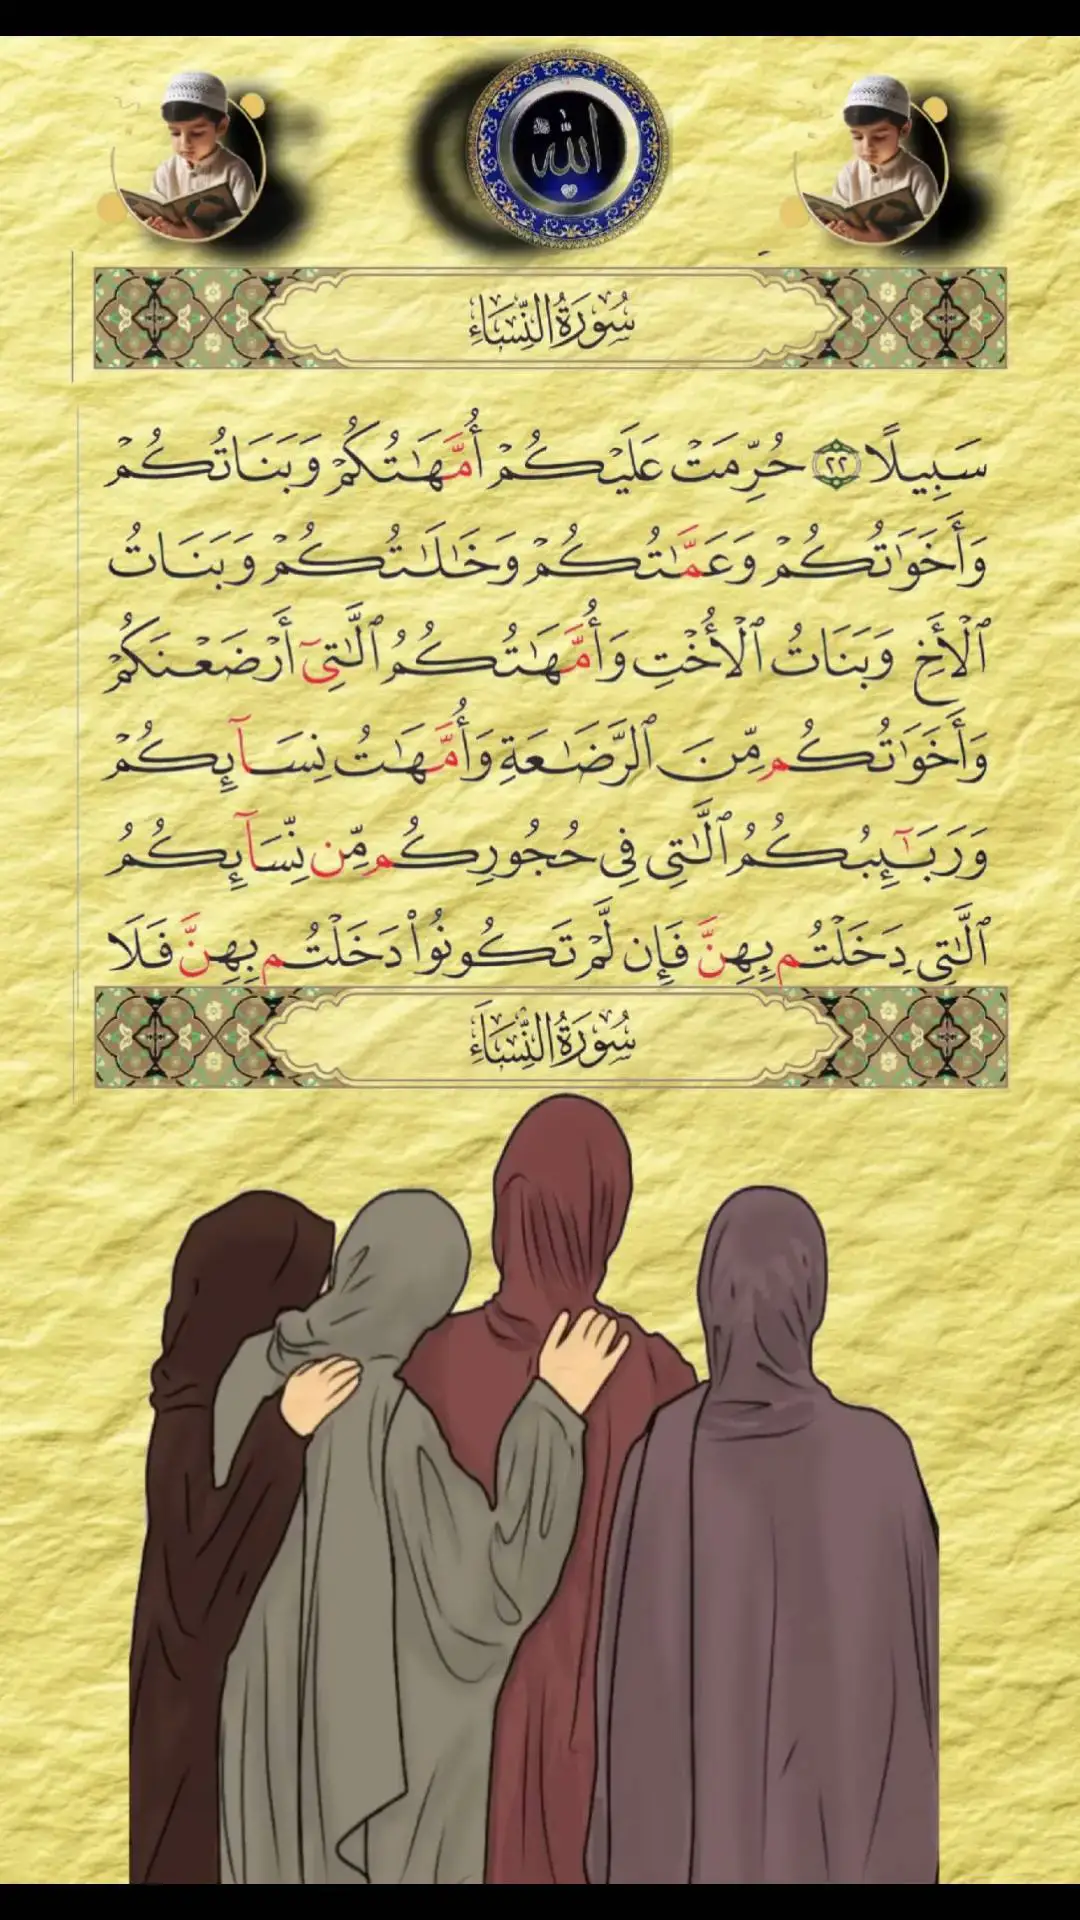 الله
سُورَةُ النِّسَاءِ
سَبِيلًا ٢٢ حُرِّمَتْ عَلَيْكُمْ أُمَّهَٰتُكُمْ وَبَنَاتُكُمْ
وَأَخَوَٰتُكُمْ وَعَمَّٰتُكُمْ وَخَٰلَٰتُكُمْ وَبَنَاتُ
ٱلْأَخِ وَبَنَاتُ ٱلْأُخْتِ وَأُمَّهَٰتُكُمُ ٱلَّٰتِىٓ أَرْضَعْنَكُمْ
وَأَخَوَٰتُكُم مِّنَ ٱلرَّضَٰعَةِ وَأُمَّهَٰتُ نِسَآئِكُمْ
وَرَبَٰٓئِبُكُمُ ٱلَّٰتِى فِى حُجُورِكُم مِّن نِّسَآئِكُمُ
ٱلَّٰتِى دَخَلْتُم بِهِنَّ فَإِن لَّمْ تَكُونُوا۟ دَخَلْتُم بِهِنَّ فَلَا
سُورَةُ النِّسَاءَ